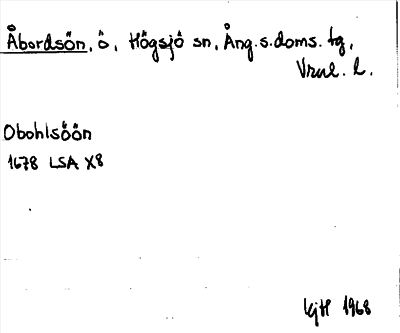 Åbordsön, ö, Högsjö sn, Ång.s.doms. tg,
Vrnl. l.
Obohlsöön
1678 LSA X8
kjH 1968